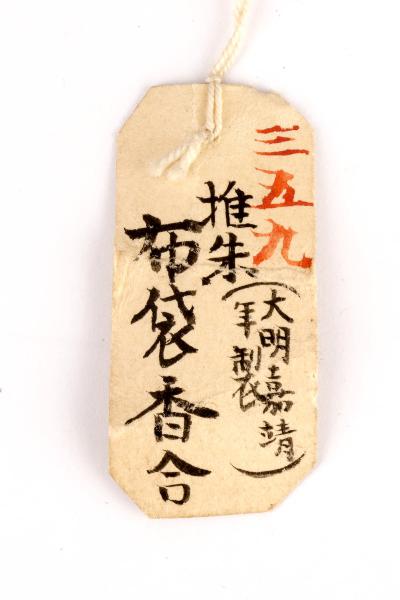 三五九
推朱（大明嘉靖
年製）
布袋香合